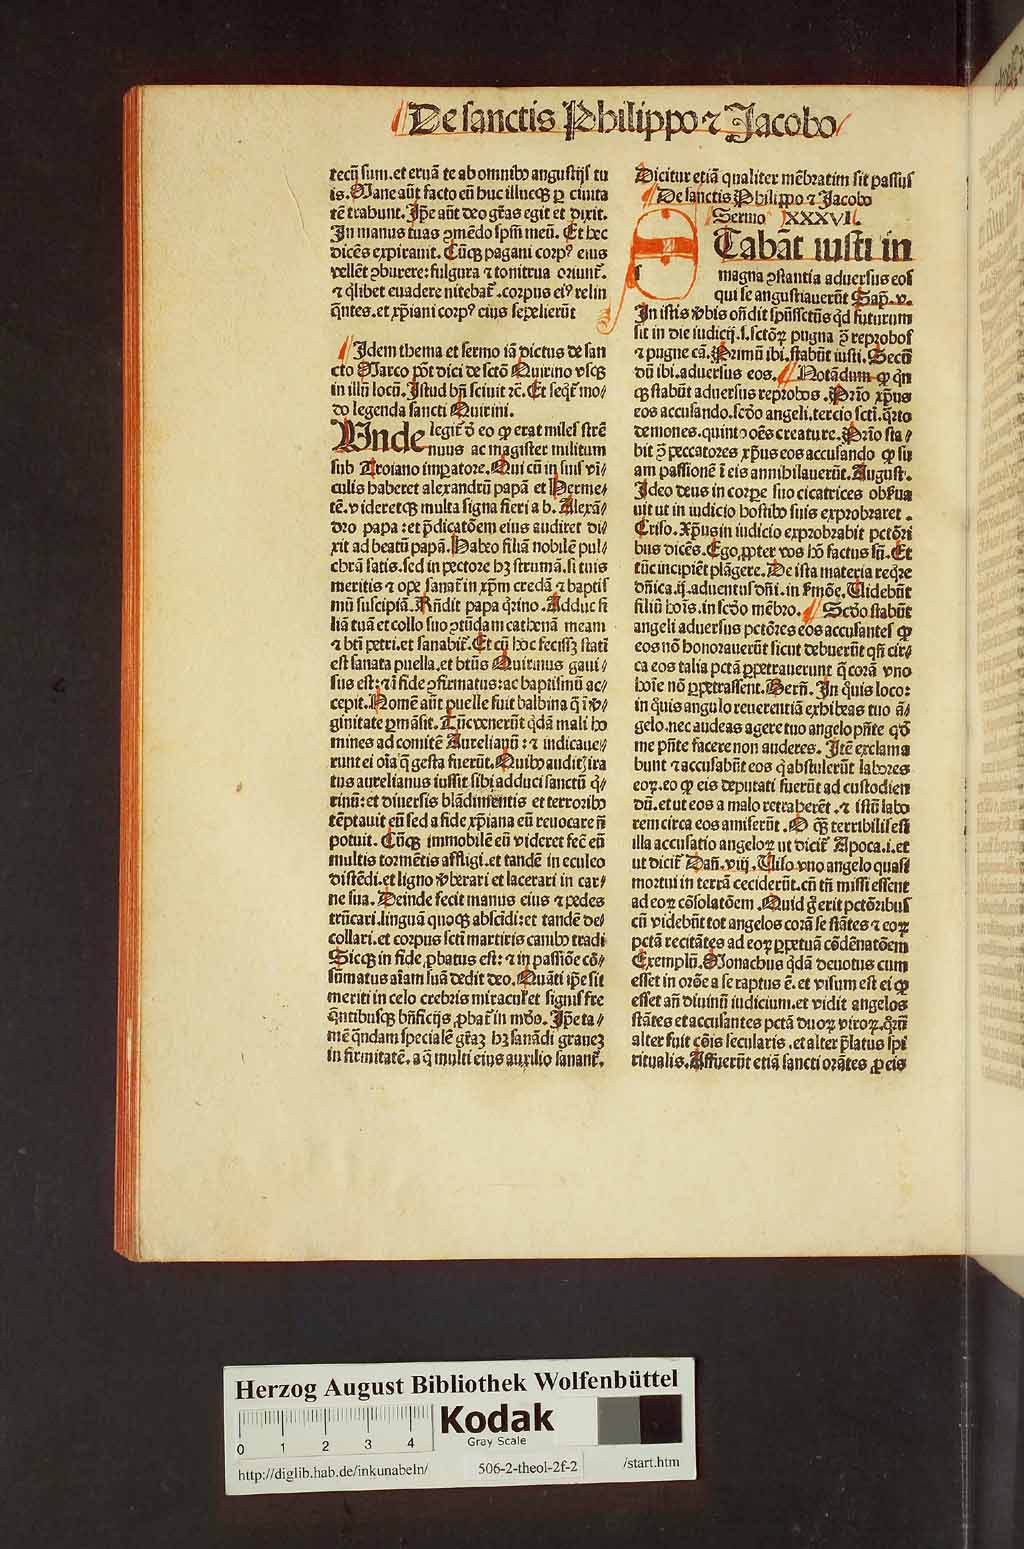 De sanctis Philippo ⁊ Jacobo
tecū sum. et eruā te ab omnibꝰ angustijs tu
is. Mane aūt facto eū huc illucqꝫ ꝑ ciuita
tē trahunt. Ip̄e aūt deo gr̄as egit et dixit.
In manus tuas ꝯmēdo sp̄m meū. Et hec
dicēs expirauit. Cūqꝫ pagani corpꝰ eius
vellēt ꝯburere: fulgura ⁊ tonitrua oriunt̄.
⁊ q̄libet euadere nitebat̄. corpus eiꝰ relin
q̄ntes. et xp̄iani corpꝰ eius sepelierūt
Idem thema et sermo iā dictus de san
cto Marco pōt dici de sctō Quirino vsqꝫ
in illū locū. Istud bn̄ sciuit ⁊c̄. Et seq̄t̄ mo/
do legenda sancti Quirini.
Vnde legit̄ d̄ eo ꝙ erat miles strē
nuus ac magister militum
sub Troiano imperatore. Qui cū in suis vī/
culis haberet alexandrū papā et Herme/
tē. videretqꝫ multa signa fieri a b. Alexā/
dro papa: et p̄dicatōem eius audiret di/
xit ad beatū papā. Habeo filiā nobilē pul/
chrā satis. sed in pectore hꝫ strumā. si tuis
meritis ⁊ ope sanat̄ in xp̄m credā ⁊ baptis
mū suscipiā. Rn̄dit papa q̄rino. Adduc fi
liā tuā et collo suo ꝯtūdam cathenā meam
⁊ bti petri. et sanabit̄. Et cū hoc fecissꝫ stati
est sanata puella. et btūs Quirinus gaui/
sus est: ⁊ ī fide ꝯfirmatus: ac baptismū ac/
cepit. Nomē aūt puelle fuit balbina q̄ ī v̄/
ginitate ꝑmāsit. Tūc venerūt q̄dā mali ho
mines ad comitē Aurelianū: ⁊ indicaue/
runt ei oīa q̄ gesta fuerūt. Quibꝰ auditꝭ ira
tus aurelianus iussit sibi adduci sanctū q̄/
rinū: et diuersis blādimentis et terroribꝰ
tēptauit eū sed a fide xp̄iana eū reuocare n̄
potuit. Cūqꝫ immobilē eū videret fec̄ eū
multis tormētis affligi. et tandē in eculeo
distēdi. et ligno v̄berari et lacerari in car/
ne sua. Deinde fecit manus eius ⁊ pedes
trūcari. linguā quoqꝫ abscidi: et tandē de/
collari. et corpus scti martiris canibꝰ tradi
Sicqꝫ in fide ꝓbatus est: ⁊ in passiōe cō/
sūmatus aīam suā dedit deo. Quāti ip̄e sit
meriti in celo crebris miraculꝭ et signis fre
q̄ntibusqꝫ bn̄ficijs ꝓbat̄ in mūdo. Ip̄e ta/
mē q̄ndam specialē gr̄aꝫ hꝫ sanādi graueꝫ
infirmitatē. a q̄ multi eius auxilio sanant̄.
Dicitur etiā qualiter mēbratim sit passus
De sanctis Philippo ⁊ Jacobo
Sermo XXXVI.
sTabāt iusti in
magna ꝯstantia aduersus eos
qui se angustiauerūt Sap. v.
In istis v̄bis on̄dit sp̄ūssctūs qd̄ futurum
sit in die iudicij. s. sctōꝝ pugna ꝯ̄ reprobos
⁊ pugne cā. Primū ibi. stabūt iusti. Secū
dū ibi. aduersus eos. Notādum ꝙ qn̄
qꝫ stabūt aduersus reprobos. Prio xp̄us
eos accusando. scd̄o angeli. tercio scti. q̄rto
demones. quinto oēs creature. Prio sta/
bit ꝯ̄ peccatores xp̄us eos accusando ꝙ su
am passionē ī eis annihilauerūt. August̄.
Ideo deus in corpe suo cicatrices obserua
uit ut in iudicio hostibꝰ suis exprobraret.
Criso. Xp̄us in iudicio exprobrabit pctōri
bus dicēs. Ego ꝓpter vos hō factus sū. Et
tūc incipiēt plāgere. De ista materia reqr̄e
dn̄ica .ij. aduentus dn̄i. in s̄mōe. Videbūt
filiū hoīs. in scd̄o mēbro. Scd̄o stabūt
angeli aduersus pctōres eos accusantes ꝙ
eos nō honorauerūt sicut debuerūt qn̄ cir/
ca eos talia pctā ꝑpetrauerunt q̄ corā vno
hoīe nō ꝑpetrassent. Bern̄. In q̄uis loco:
in q̄uis angulo reuerentiā exhibeas tuo ā/
gelo. nec audeas agere tuo angelo pn̄te qd̄
me pn̄te facere non auderes. Itē exclama
bunt ⁊ accusabūt eos q̄ abstulerūt labores
eoꝝ. eo ꝙ eis deputati fuerūt ad custodien
dū. et ut eos a malo retraherēt. ⁊ istū labo
rem circa eos amiserūt. O q̄ꝫ terribilis est
illa accusatio angeloꝝ ut dicit̄ Apoca. i. et
ut dicit̄ Dan̄. viij. Viso vno angelo quasi
mortui in terrā ceciderūt. cū tn̄ missi essent
ad eoꝝ cōsolatōem. Quid g̊ erit pctōribus
cū videbūt tot angelos corā se stātes ⁊ eoꝝ
pctā recitātes ad eoꝝ ꝑpetuā cōdēnatōem
Exemplū. Monachus q̄dā deuotus cum
esset in orōe a se raptus ē. et visum est ei ꝙ
esset an̄ diuinū iudicium. et vidit angelos
stātes et accusantes pctā duoꝝ viroꝝ. q̄ꝝ
alter fuit cōis secularis. et alter p̄latus spi
ritualis. Affuerūt etiā sancti orātes ꝓ eis
Herzog August Bibliothek Wolfenbüttel
0 1 2 3 4
Kodak
Gray Scale
http://diglib.hab.de/inkunabeln/ 506-2-theol-2f-2 /start.htm